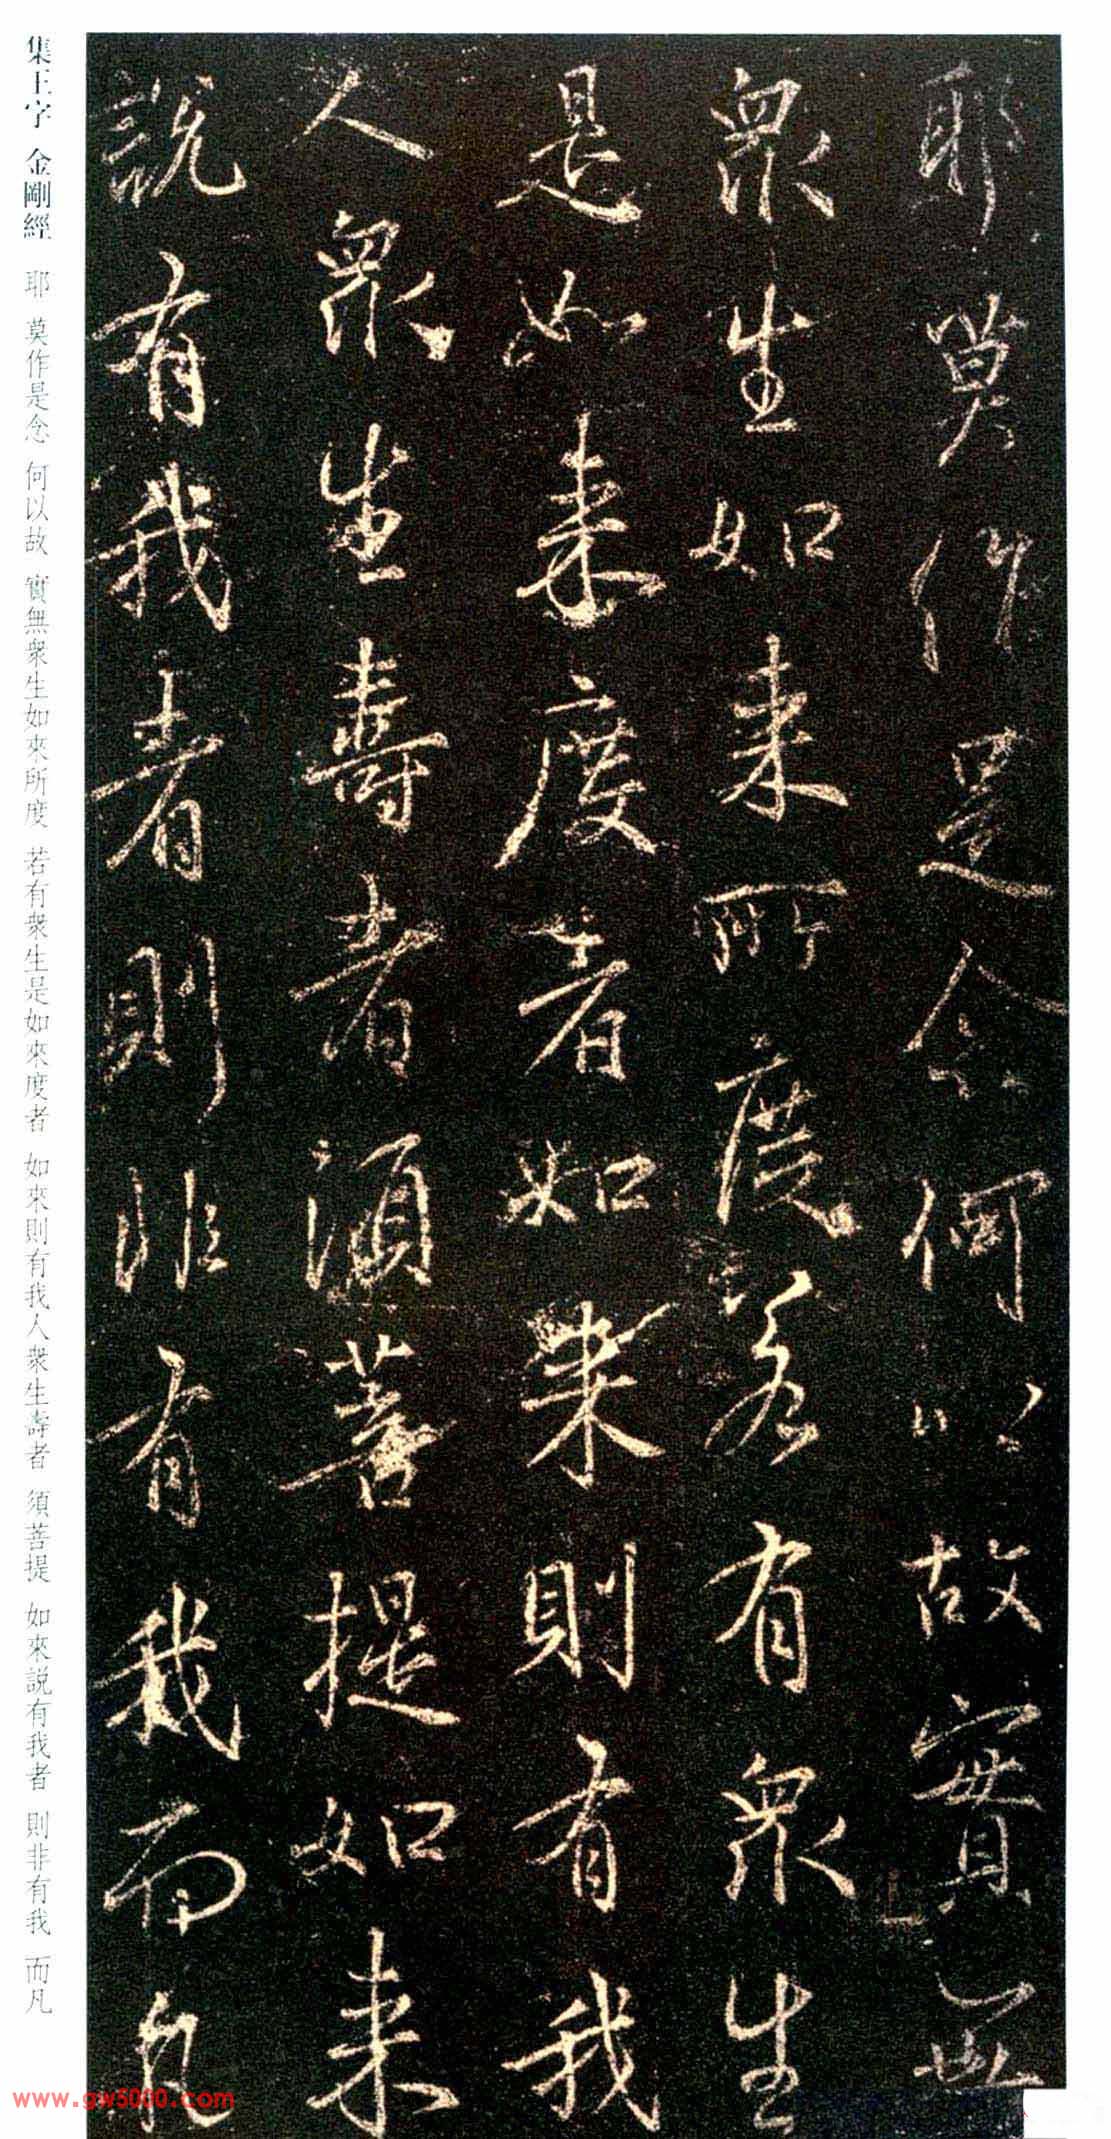 耶莫作是念何以故實無
衆生如来所度若有衆生
是如来度者如来則有我
人衆生壽者須菩提如来
説有我者則非有我而凡
集王字 金剛經 耶 莫作是念 何以故 實無衆生如來所度 若有衆生是如來度者 如來則有我人衆生壽者 須菩提 如來説有我者 則非有我 而凡
www.gw5000.com